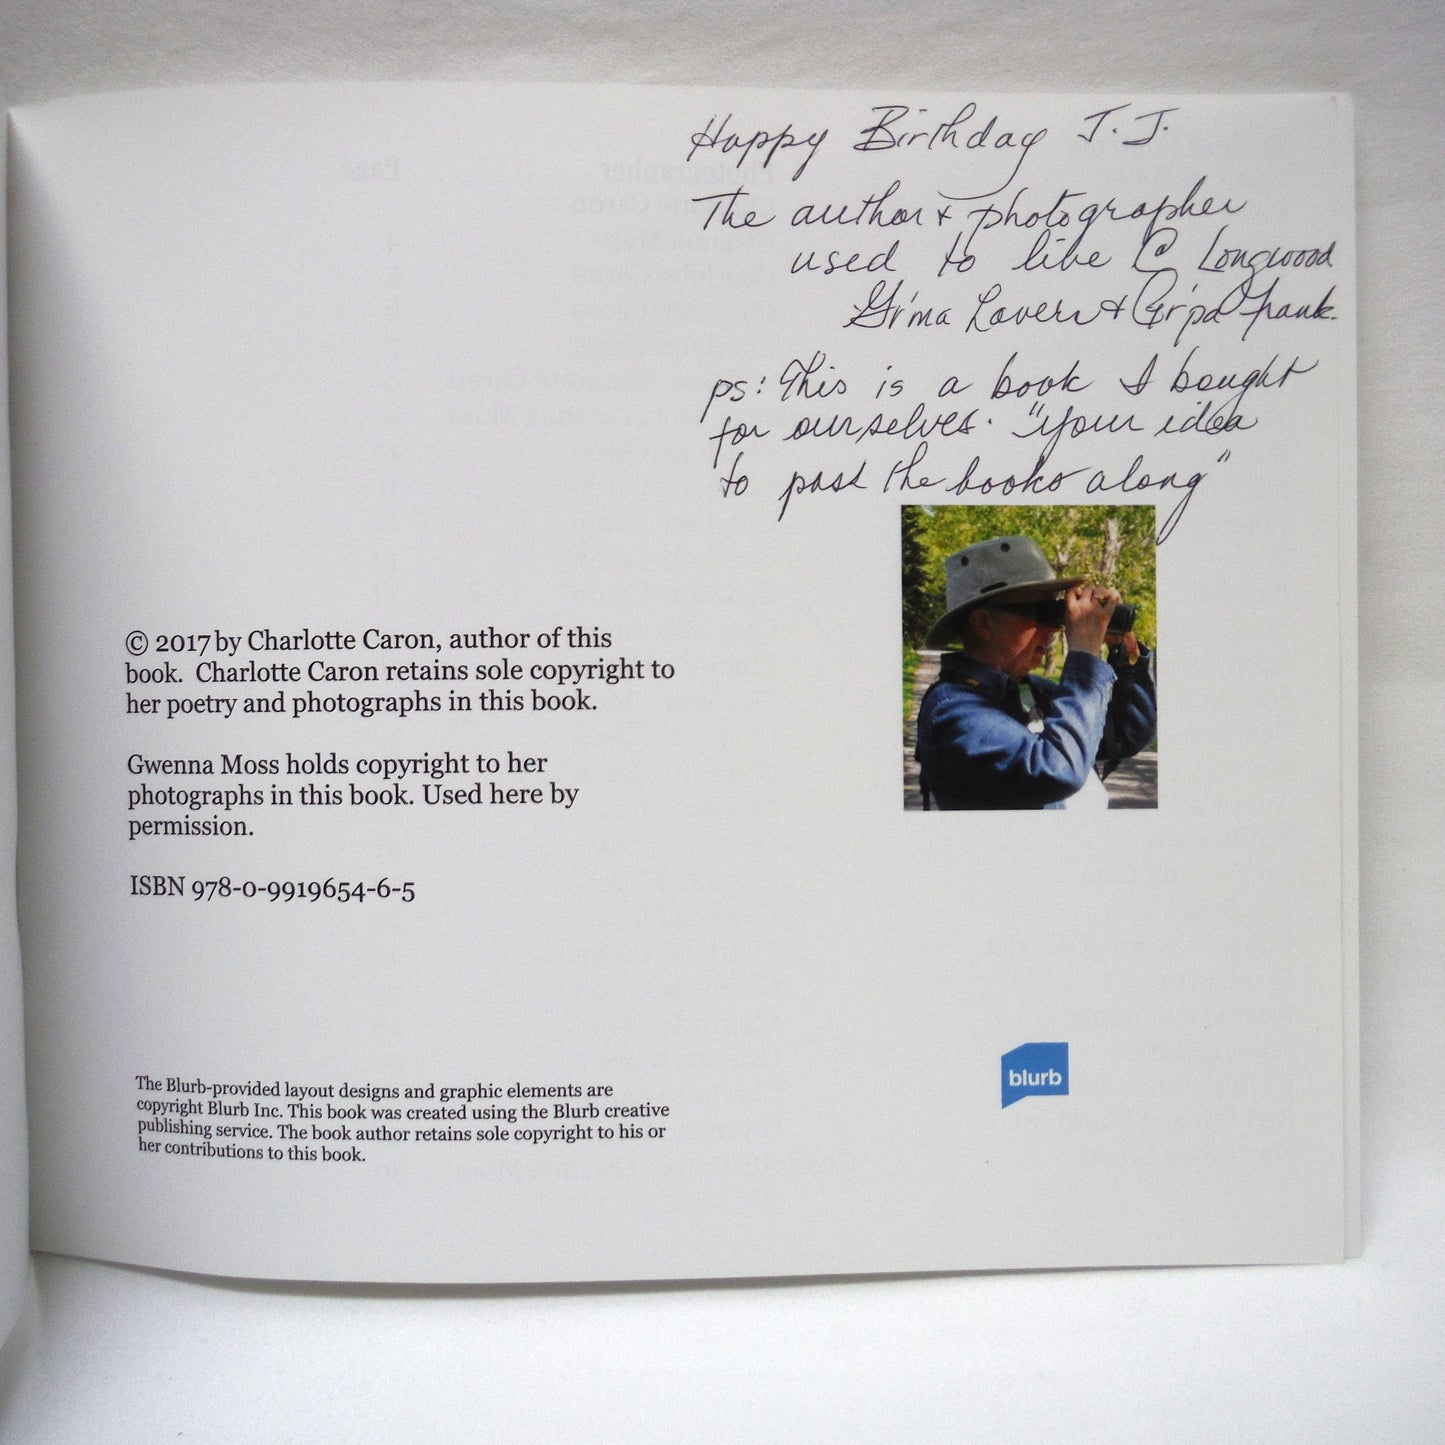 Happy Birthday J. J.
The author & photographer
used to live @ Longwood
Gr'ma Lavern & Gr'pa Frank.
ps: This is a book I bought
for ourselves. "Your idea
to pass the books along"
© 2017 by Charlotte Caron, author of this
book. Charlotte Caron retains sole copyright to
her poetry and photographs in this book.
Gwenna Moss holds copyright to her
photographs in this book. Used here by
permission.
ISBN 978-0-9919654-6-5
blurb
The Blurb-provided layout designs and graphic elements are
copyright Blurb Inc. This book was created using the Blurb creative
publishing service. The book author retains sole copyright to his or
her contributions to this book.